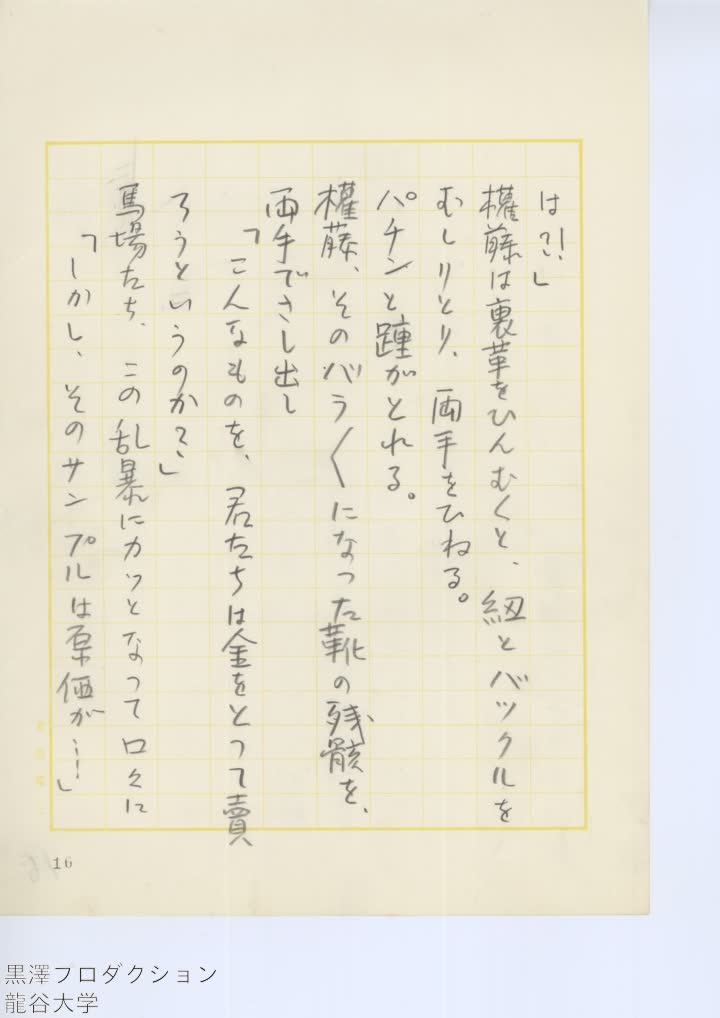 は?!」
權藤は裏革をひんむくと、紐とバックルを
むしりとり、両手をひねる。
パチンと踵がとれる。
權藤、そのバラ〱になった靴の残骸を、
両手でさし出し
「こんなものを、君たちは金をとって賣
ろうというのか?」
馬場たち、この乱暴にカッとなって口々に
「しかし、そのサンプルは原価が…!!」
16
黒澤プロダクション
龍谷大学